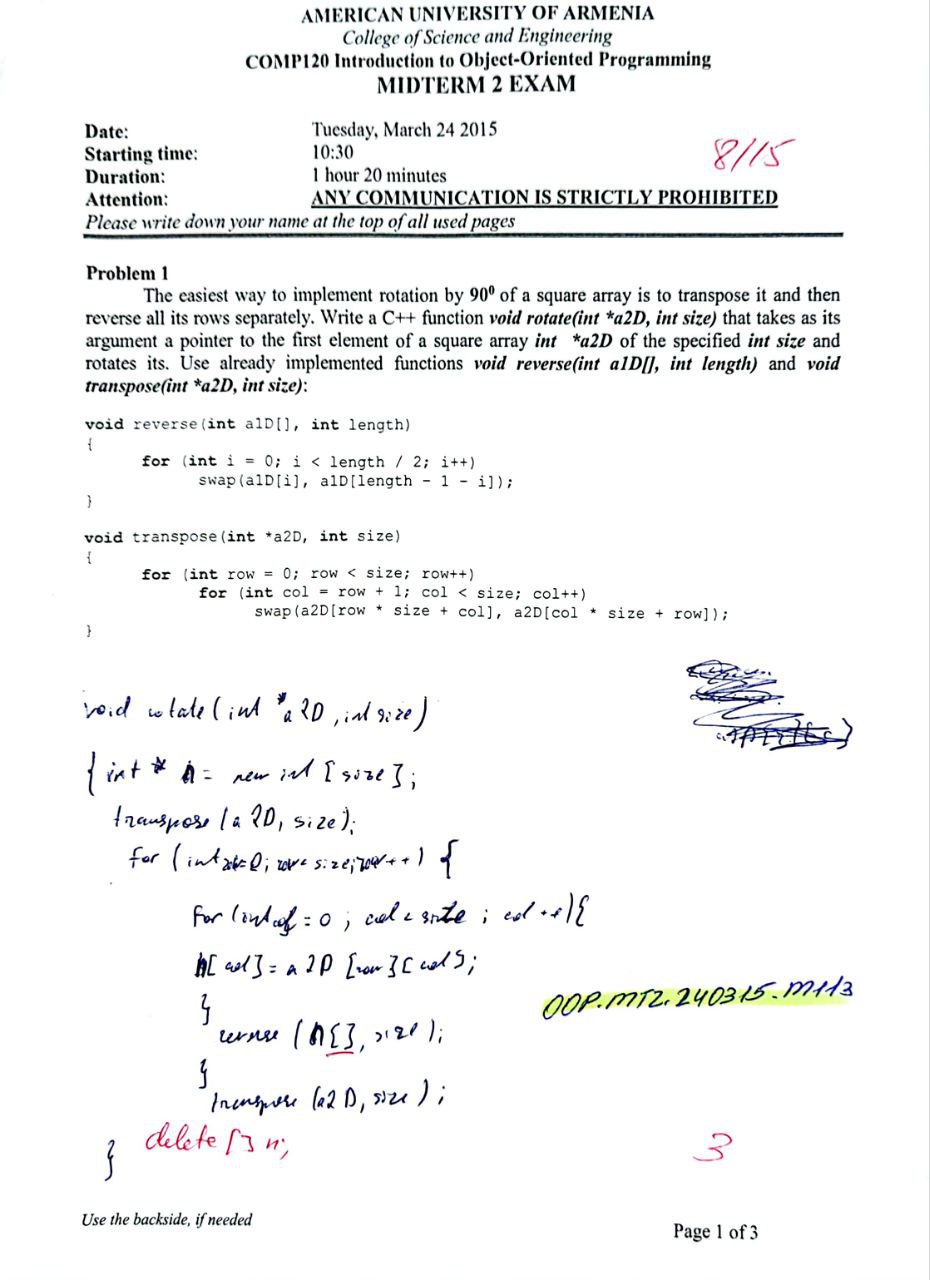 AMERICAN UNIVERSITY OF ARMENIA
College of Science and Engineering
COMP120 Introduction to Object-Oriented Programming
MIDTERM 2 EXAM
Date: Tuesday, March 24 2015
Starting time: 10:30
8/15
Duration: 1 hour 20 minutes
Attention: ANY COMMUNICATION IS STRICTLY PROHIBITED
Please write down your name at the top of all used pages
Problem 1
The easiest way to implement rotation by 90⁰ of a square array is to transpose it and then
reverse all its rows separately. Write a C++ function void rotate(int *a2D, int size) that takes as its
argument a pointer to the first element of a square array int *a2D of the specified int size and
rotates its. Use already implemented functions void reverse(int a1D[], int length) and void
transpose(int *a2D, int size):
void reverse(int a1D[], int length)
{
for (int i = 0; i < length / 2; i++)
swap(a1D[i], a1D[length - 1 - i]);
}
void transpose(int *a2D, int size)
{
for (int row = 0; row < size; row++)
for (int col = row + 1; col < size; col++)
swap(a2D[row * size + col], a2D[col * size + row]);
}
void rotate(int *a2D, int size)
{ int * n = new int [size];
transpose(a2D, size);
for (int row=0; row< size; row++) {
for (int col=0; col < size; col++){
n[col]=a2D[row][col];
}
reverse (n[], size);
}
transpose (a2D, size);
} delete[] n;
OOP.MT2.240315.M113
3
Use the backside, if needed
Page 1 of 3